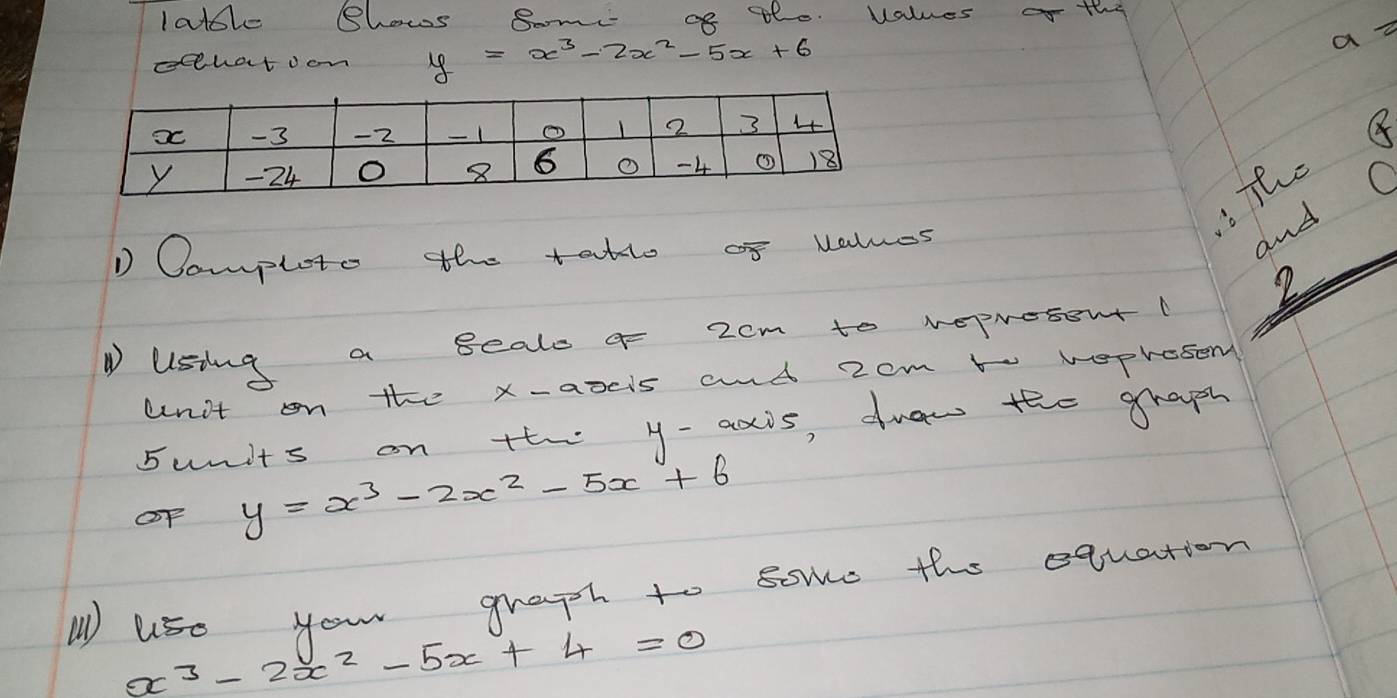 Table shows some of the values of the
equation y = x³ - 2x² - 5x + 6
x -3 -2 -1 0 1 2 3 4
y -24 0 8 6 0 -4 0 18
i) Complete the table of values
ii) Using a scale of 2cm to represent 1
unit on the x-axis and 2cm to represent
5units on the y-axis, draw the graph
of y = x³ - 2x² - 5x + 6
iii) use your graph to solve the equation
x³ - 2x² - 5x + 4 = 0
a =
∴ The
and
2